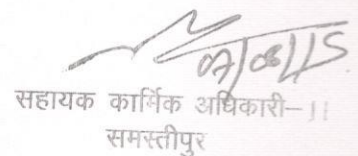 सहायक कार्मिक अधिकारी–II
समस्तीपुर